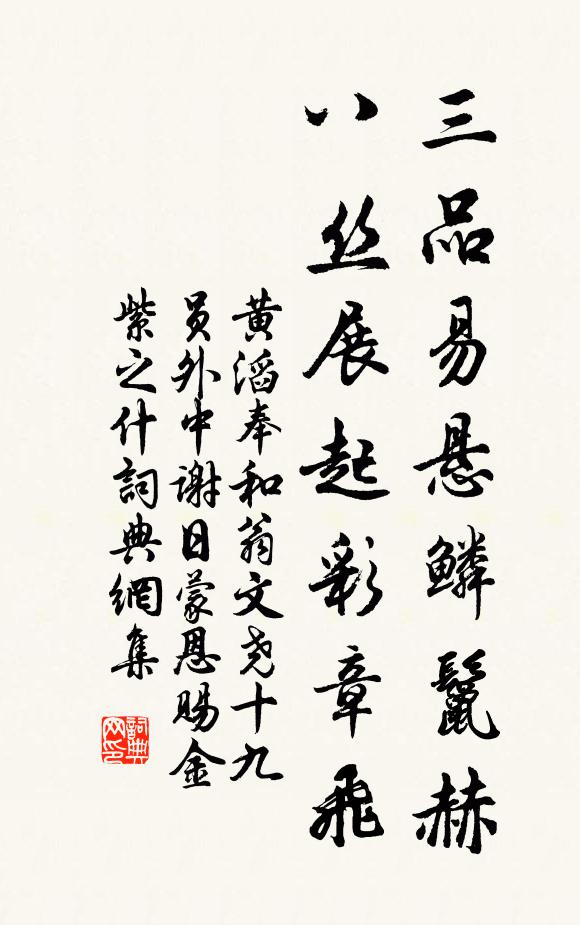 三品易悬鳞鬣赫
八丝展起彩章飛
黄滔奉和翁文尧十九
員外中谢日蒙恩赐金
紫之什詞典網集
詞典
网印